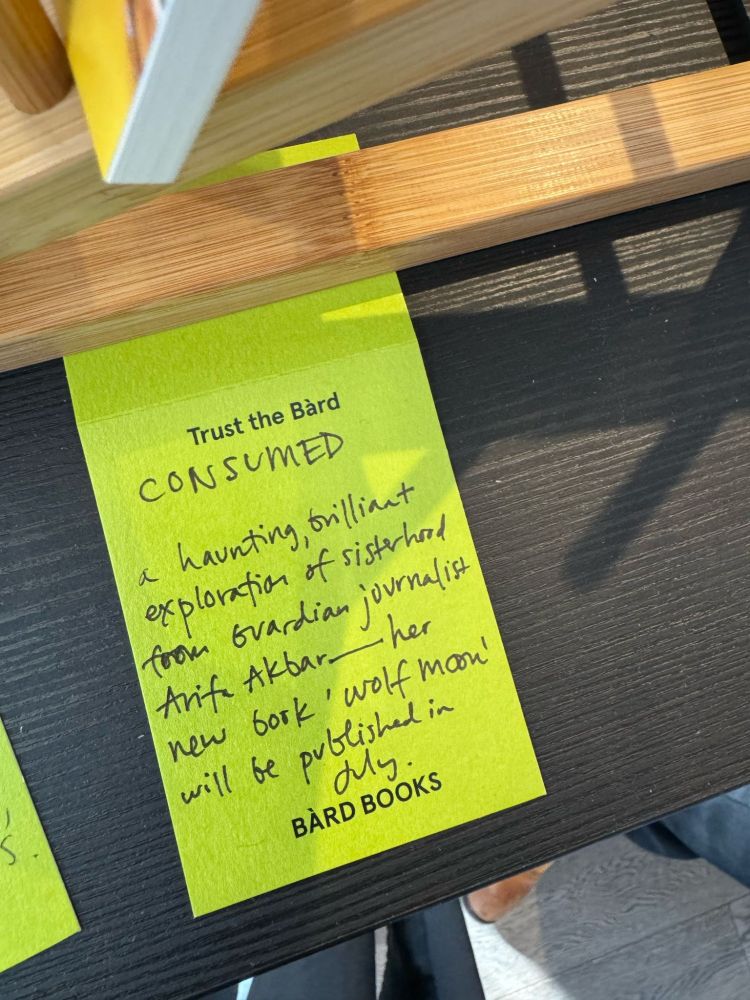 Trust the Bàrd
CONSUMED
a haunting, brilliant
exploration of sisterhood
from Guardian journalist
Arifa Akbar — her
new book 'wolf moon'
will be published in
July.
BÀRD BOOKS
s.